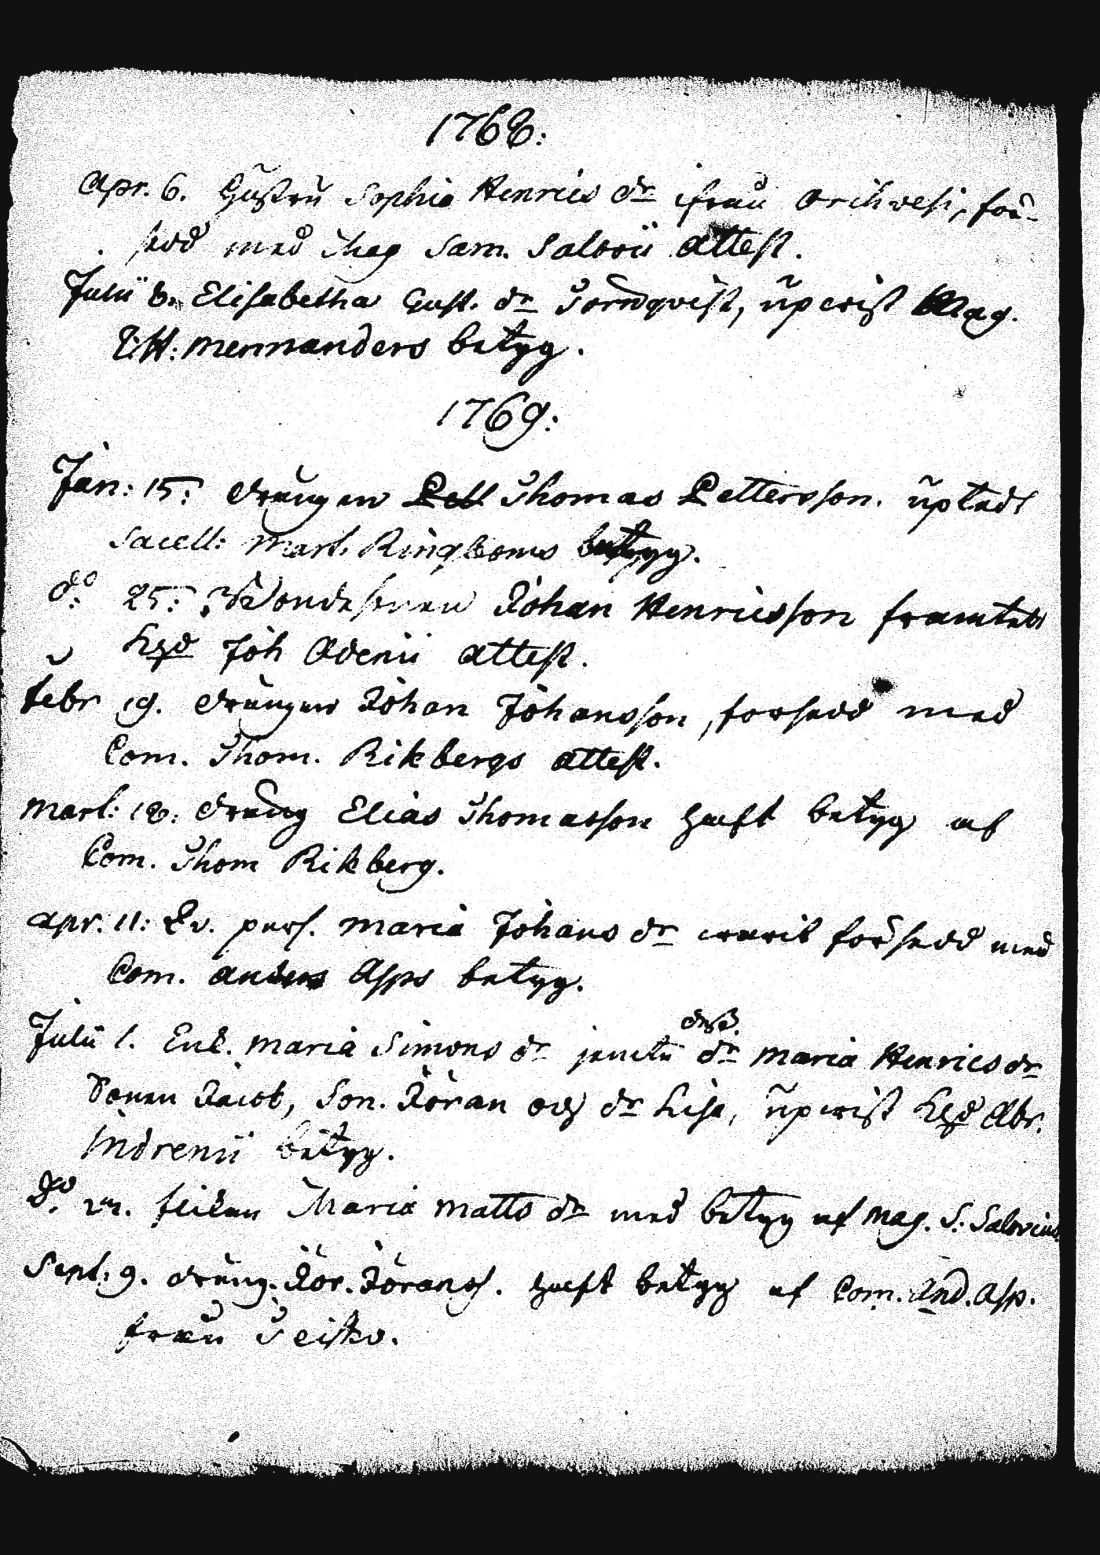 1768:
Apr. 6. Hustru Sophia Henrics dr ifrån Orihvesi, för-
sedd med Mag Sam. Salovii attest.
Julii 8. Elisabetha Gust. dr Törnqvist, upvist Mag.
E: H: Mennanders betyg.
1769:
Jan: 15: drängen Thomas Pettersson. upted
Sacell: Mart. Ringboms betyg.
do 25: Bondesonen Johan Henricsson framtedt
Joh Adenii attest.
Febr 19. drängen Johan Johansson, försedd med
Com. Thom. Rikbergs attest.
Mart: 18: dräng Elias Thomasson haft betyg af
Com. Thom Rikberg.
Apr. 11: Qv. pers. Maria Johans dr warit försedd med
Com. Anders Asps betyg.
Julii 1. Enk. Maria Simons dr
dess.
dr Maria Henrics dr
Sonen Jacob, Son. Jöran och dr Lisa, upvist Abr.
Indrenii betyg.
Do 22. Pickan Maria Matts dr med betyg af Mag. S. Salovius
Sept: 9. dräng. Jör. Jöranss. haft betyg af Com. And. Asp.
från Teisko.